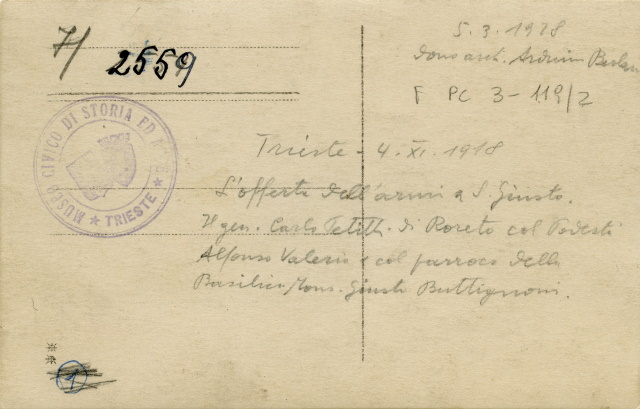 7/
2559
5.3.1978
dono arch. Arduino Berlam
F PC 3-119/2
MUSEO CIVICO DI STORIA ED ARTE
★ TRIESTE ★
Trieste - 4. XI. 1918
L'offerta dell'armi a S. Giusto.
Il gen. Carlo Petitti di Roreto col Podestà
Alfonso Valerio e col parroco della
Basilica Mons. Giusto Buttignoni.
1